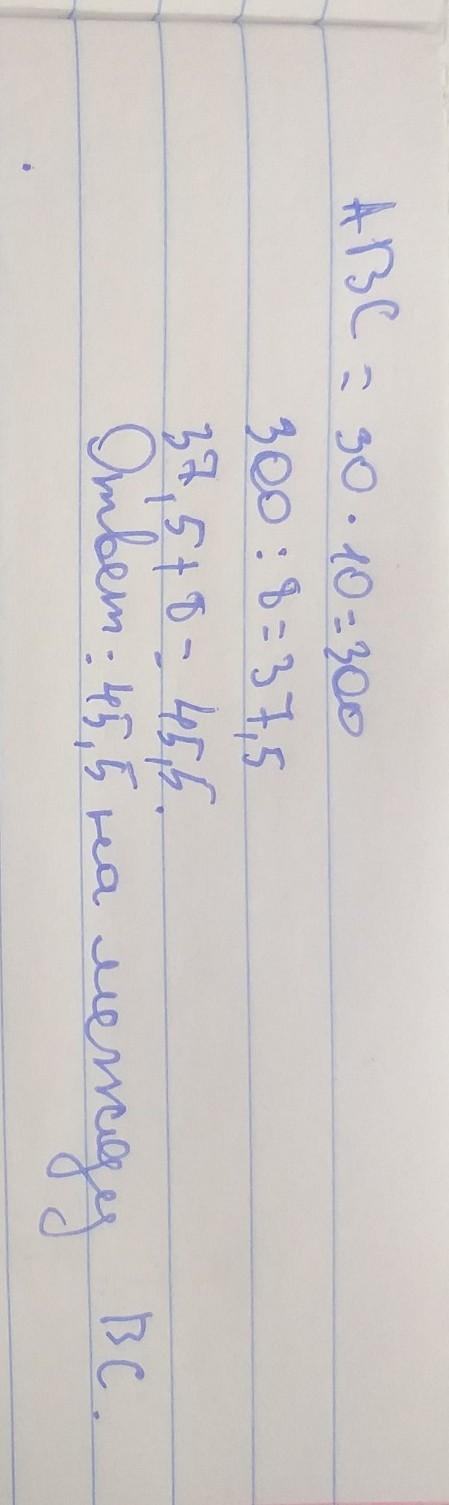 ABC = 30 · 10 = 300
300 : 8 = 37,5
37,5 + 8 = 45,5.
Ответ: 45,5 на между BC.